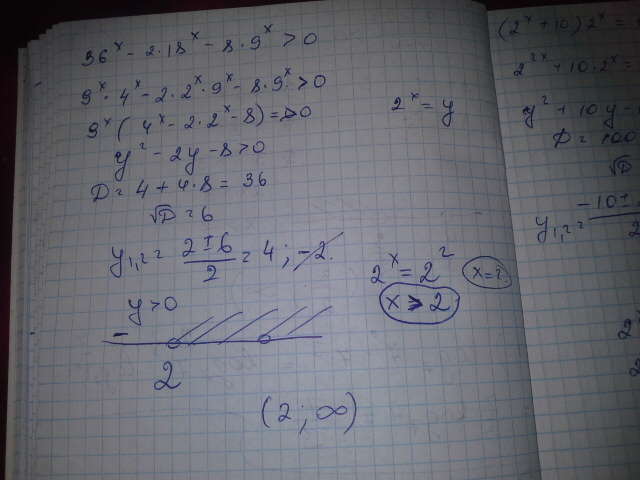 36ˣ - 2·18ˣ - 8·9ˣ > 0
9ˣ · 4ˣ - 2·2ˣ·9ˣ - 8·9ˣ > 0
9ˣ ( 4ˣ - 2·2ˣ - 8) > 0
2ˣ = y
y² - 2y - 8 > 0
D = 4 + 4·8 = 36
√D = 6
y₁,₂ = (2 ± 6)/2 = 4 ; -2.
2ˣ = 2²
x =
y > 0
x > 2
-
2
(2 ; ∞)
(2ˣ + 10) 2ˣ =
2²ˣ + 10·2ˣ =
y² + 10y -
D = 100
√D
y₁,₂ = (-10 ±)/2
2
2